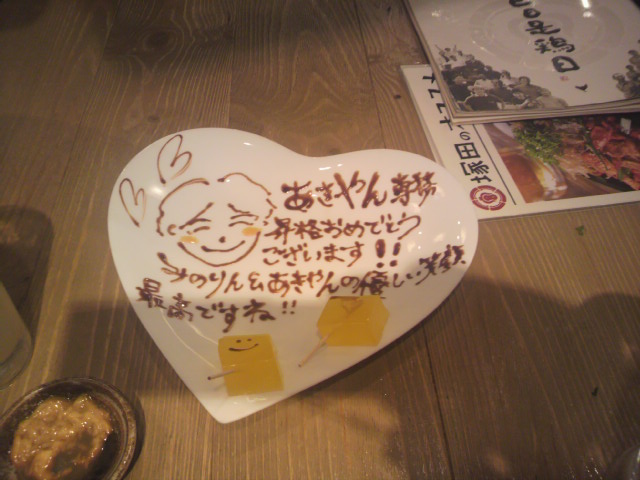 日日是鶏日
塚田の
あきやん専務
昇格おめでとう
ございます!!
みのりん&あきやんの優しい笑顔
最高ですね!!